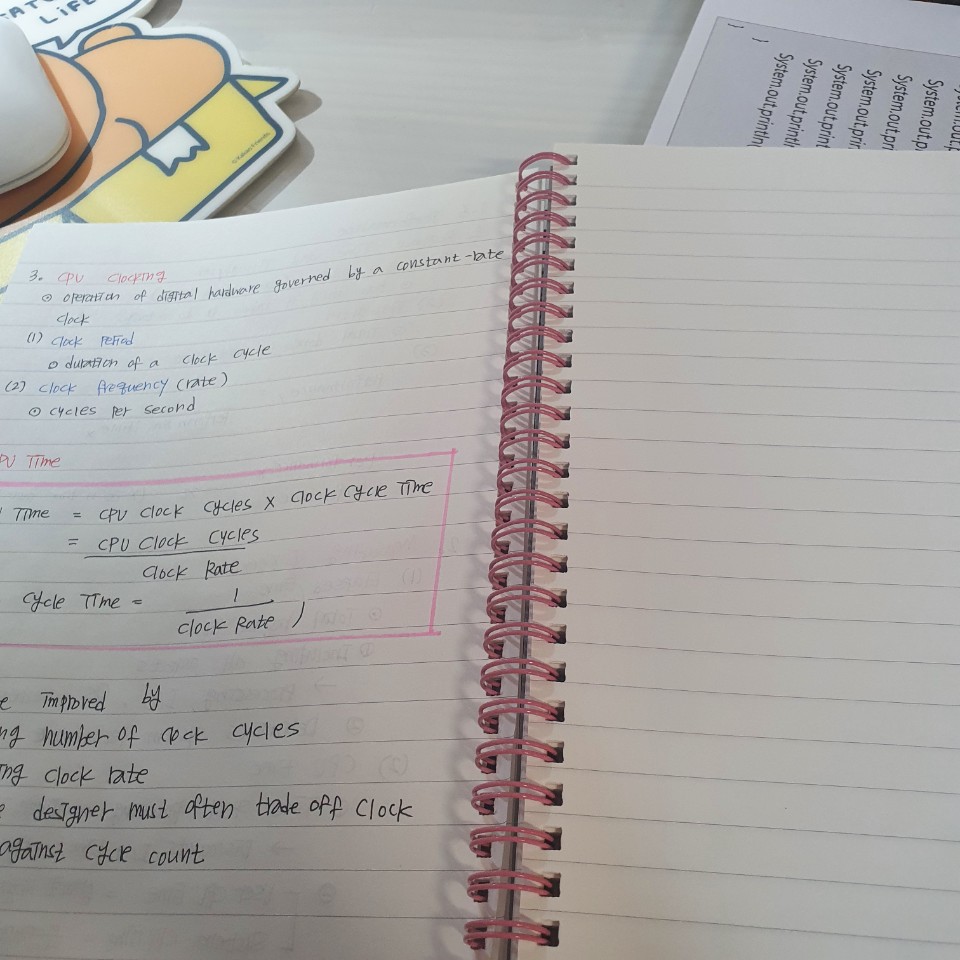 LIFE
© Kakao Friends
System.out.println
System.out.printl
System.out.print
System.out.pr
System.out.pr
System.out.p
3. CPU Clocking
operation of digital hardware governed by a constant-rate
clock
(1) clock period
duration of a clock cycle
(2) clock frequency (rate)
cycles per second
PU Time
Time = CPU clock cycles X clock cycle Time
= CPU clock cycles
clock Rate
cycle Time = 1
clock Rate )
e improved by
ng number of clock cycles
ing clock rate
e designer must often trade off clock
against cycle count